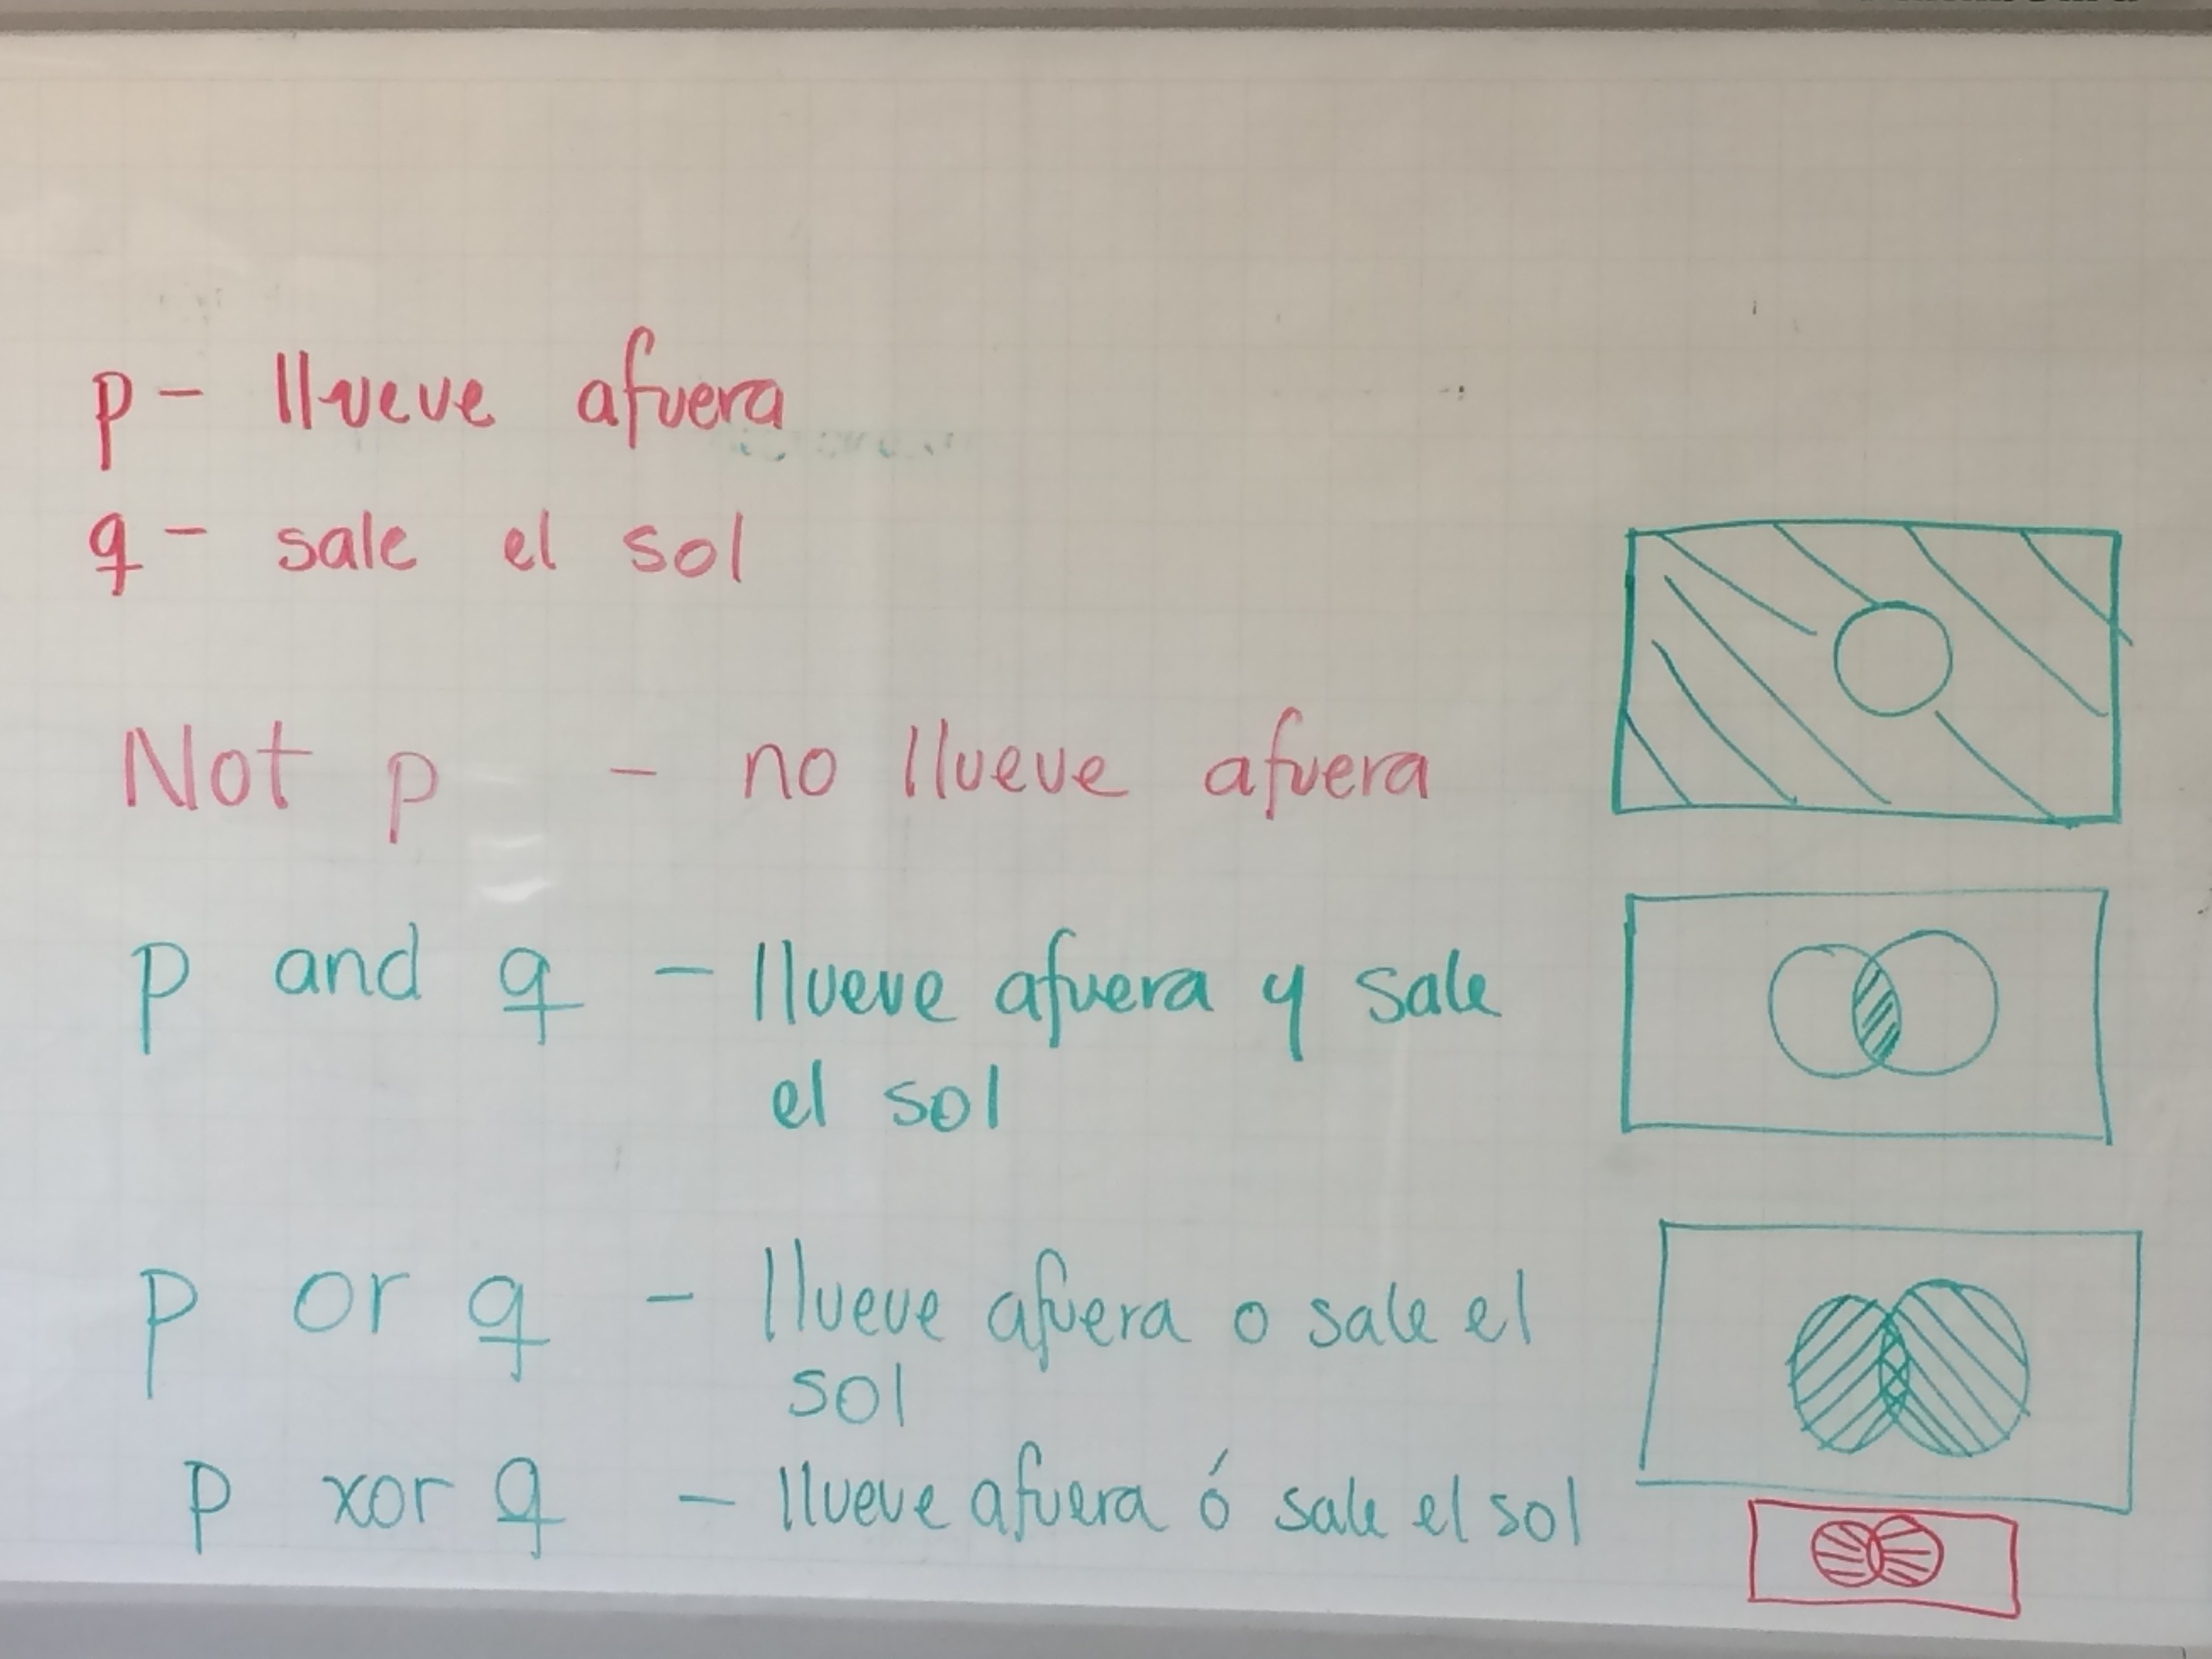 p - llueve afuera
q - sale el sol
Not p - no llueve afuera
p and q - llueve afuera y sale
el sol
p or q - llueve afuera o sale el
sol
p xor q - llueve afuera ó sale el sol